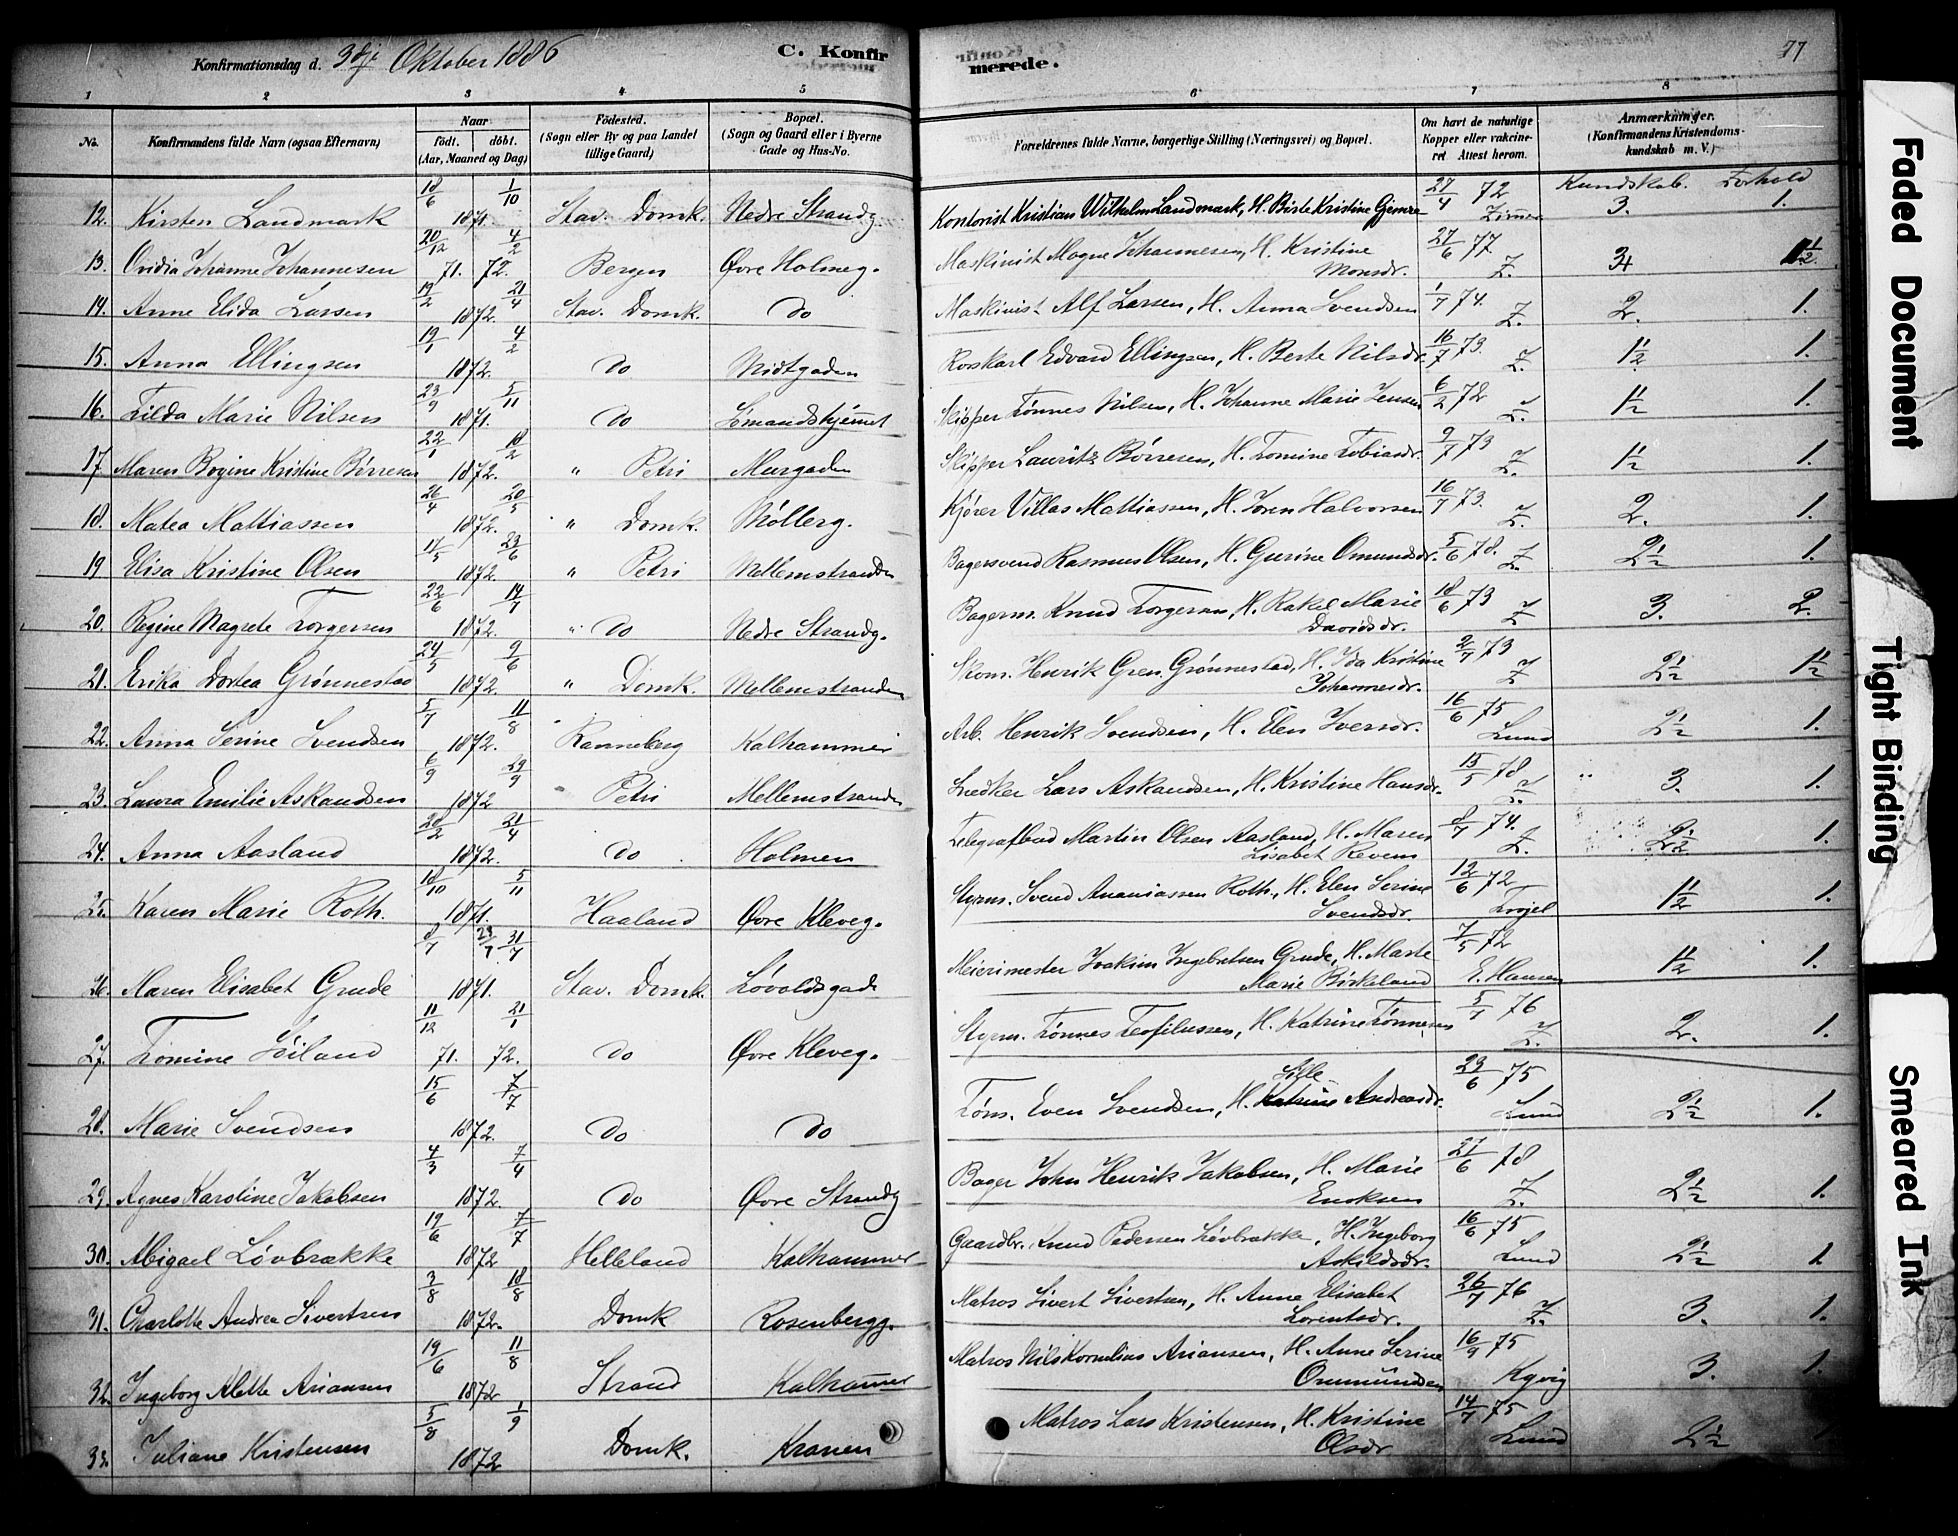 Konfirmationsdag d. 3dje Oktober 1886
C. Konfir
merede.
77
1 2 3 4 5 6 7 8
No.
Konfirmandens fulde Navn (ogsaa Efternavn)
Naar
födt. döbt.
(Aar, Maaned og Dag)
Födested.
(Sogn eller By og paa Landet
tillige Gaard)
Bopæl.
(Sogn og Gaard eller i Byerne
Gade og Hus-No.
Forældrenes fulde Navne, borgerlige Stilling (Næringsvei) og Bopæl.
Om havt de naturlige
Kopper eller vakcine-
ret Attest herom.
Anmærkninger.
(Konfirmandens Kristendoms-
kundskab m. V.)
Kundskab. Forhold
12. Kirsten Landmark 18/6 1/10 1871. Stav. Domk. Nedre Strandg. Kontorist Kristian Wilhelm Landmark, H. Birte Kristine 27/4 72 3. 1.
13. Ovidia Johanne Johannesen 20/12 71. 4/2 72. Bergen Øvre Holmeg. Maskinist Mogne Johannesen, H. Kristine
Monsdr. 27/6 77 Z. 1 1/2
14. Anne Elida Larsen 19/2 21/4 1872. Stav. Domk. do Maskinist Alf Larsen, H. Anna Svendsen 1/7 74. Z. 2. 1.
15. Anna Ellingsen 19/1 4/2 1872. do Midtgaden Rorskarl Edvard Ellingsen, H. Berte Nilsdr. 16/7 73. Z. 1 1/2 1.
16. Tilda Marie Nilsen 23/9 5/11 1871. do Sømandshjemmet Skipper Tønnes Nilsen, H. Johanne Marie Jensen 6/2 72 Z. 1 1/2 1.
17. Maren Bogine Kristine Børresen 22/1 18/2 1872. " Petri Murgaden Skipper Laurits Børresen, H. Tomine Tobiasdr. 9/7 73 Z. 1 1/2 1.
18. Matea Mattiassen 26/4 20/5 1872. " Domk. Mølleg. Kjører Villas Mattiassen, H. Joren Halvorsen 16/7 73. Z. 2. 1.
19 Elisa Kristine Olsen 17/5 23/6 1872. " Petri Mellemstranden Bagersvend Rasmus Olsen, H. Gurine Omundsdr. 5/6 78. Z. 2 1/2 1.
20. Regine Magrete Torgersen 22/6 14/7 1872. " do Nedre Strandg. Bagerm. Knud Torgersen, H. Rakel Marie
Davidsdr. 18/6 73 Z 3. 2.
21. Erika Dortea Grønnestad 24/5 9/6 1872. " Domk. Mellemstranden Skom. Henrik Gren. Grønnestad, H. Ida Kristine
Johannesdr. 2/7 73 Z 2 1/2 1 1/2
22. Anna Serine Svendsen 5/7 11/8 1872. Ranneberg Kalhammer Arb. Henrik Svendsen, H. Elen Iversdr. 16/6 75 Lund 2 1/2 1.
23. Laura Emilie Askandsen 6/9 29/9 1872 " Petri Mellemstranden Snedker Lars Askandsen, H. Kristine Hansdr. 15/5 78 Z. " 3. 1.
24. Anna Aasland 28/2 21/4 1872. do Holmen Telegrafbud Martin Olsen Aasland, H. Maren
Lisabet Revem 8/7 74. Z. 2 1/2 1.
25. Karen Marie Roth. 18/10 5/11 1871. Haaland Øvre Kleveg. Styrm. Svend Ananiassen Roth, H. Elen Serine
Svendsdr. 12/6 72 1 1/2 1.
26. Maren Elisabet Grude 8/7 23/7 31/7 1871. Stav. Domk. Løvoldsgade Meierimester Joakim Ingebretsen Grude, H. Marte
Marie Birkeland 7/5 72 E. Hansen 1 1/2 1.
27. Tomine 11/12 71. 21/1 72. do Øvre Kleveg. Styrm. Tønnes Teofilussen, H. Katrine Tønnesen 5/7 76 Z. 2. 1.
28. Marie Svendsen 15/6 7/7 1872. do do Tøm. Even Svendsen, H. Sille Andreasdr. 23/6 75 Lund 2 1/2 1.
29. Agnes Karoline Jakobsen 4/3 7/4 1872. do Øvre Strandg Bager John Henrik Jakobsen, H. Marie
Enoksen 27/6 78 Z. 2 1/2 1.
30. Abigael Løvbrække 19/6 7/7 1872 Helleland Kalhammer Gaardbr. Knud Pedersen Løvbrække, H. Ingeborg
Askildsdr. 16/6 75 Lund 2 1/2 1
31. Charlotte Andrea Sivertsen 3/8 18/8 1872. Domk Rosenbergg. Matros Sivert Sivertsen, H. Anne Elisabet
Lorentsdr. 26/7 76 Z. 3. 1.
32. Ingeborg Alette Ariansen 19/6 11/8 1872 Strand Kalhammer Matros Nils Kornelius Ariansen, H. Anne Serine
Ommundsen 16/9 75 Kyvig 3. 1.
33. Juliane Kristensen 5/8 1/9 1872 Domk. Kranen Matros Lars Kristensen, H. Kristine
Olsdr 14/7 75 Lund 2 1/2
Faded Document
Tight Binding
Smeared Ink